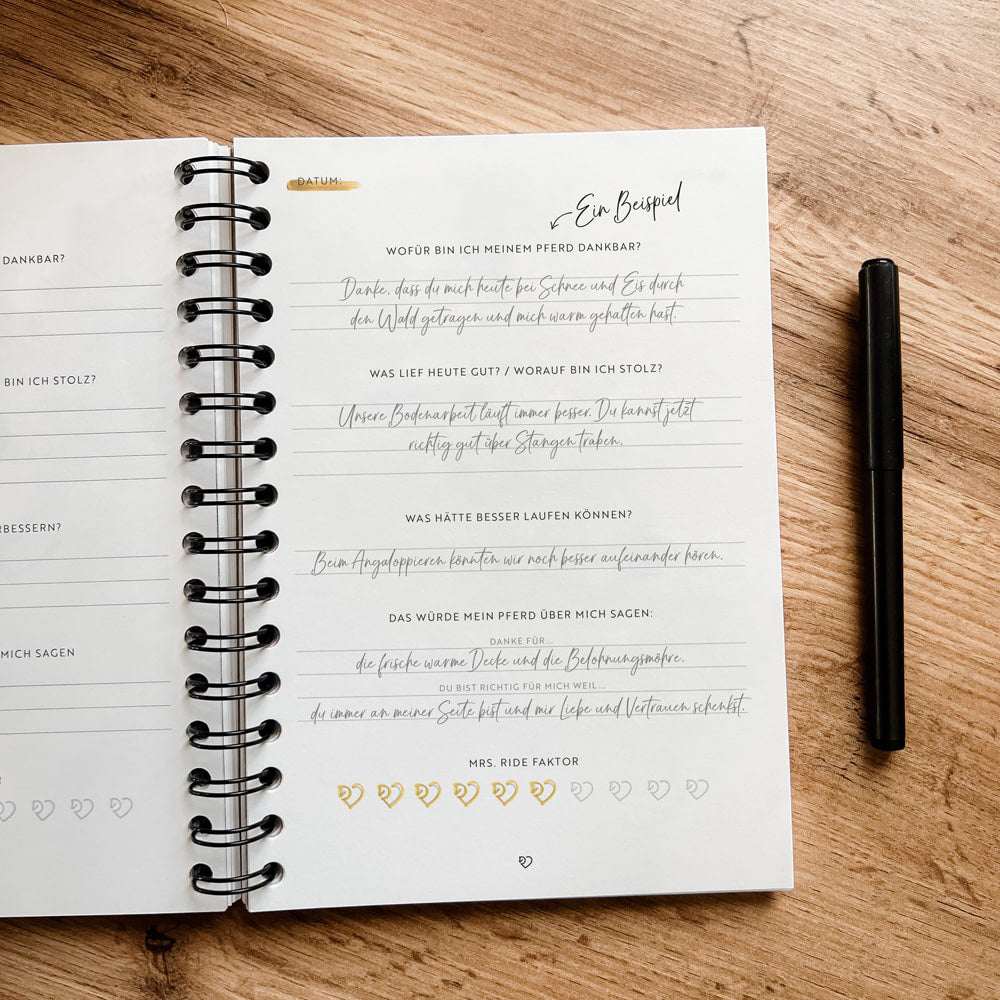 DANKBAR?
BIN ICH STOLZ?
RBESSERN?
MICH SAGEN
DATUM:
Ein Beispiel
WOFÜR BIN ICH MEINEM PFERD DANKBAR?
Danke, dass du mich heute bei Schnee und Eis durch
den Wald getragen und mich warm gehalten hast.
WAS LIEF HEUTE GUT? / WORAUF BIN ICH STOLZ?
Unsere Bodenarbeit läuft immer besser. Du kannst jetzt
richtig gut über Stangen traben.
WAS HÄTTE BESSER LAUFEN KÖNNEN?
Beim Angaloppieren könnten wir noch besser aufeinander hören.
DAS WÜRDE MEIN PFERD ÜBER MICH SAGEN:
DANKE FÜR...
die frische warme Decke und die Belohnungsmöhre.
DU BIST RICHTIG FÜR MICH WEIL...
du immer an meiner Seite bist und mir Liebe und Vertrauen schenkst.
MRS. RIDE FAKTOR